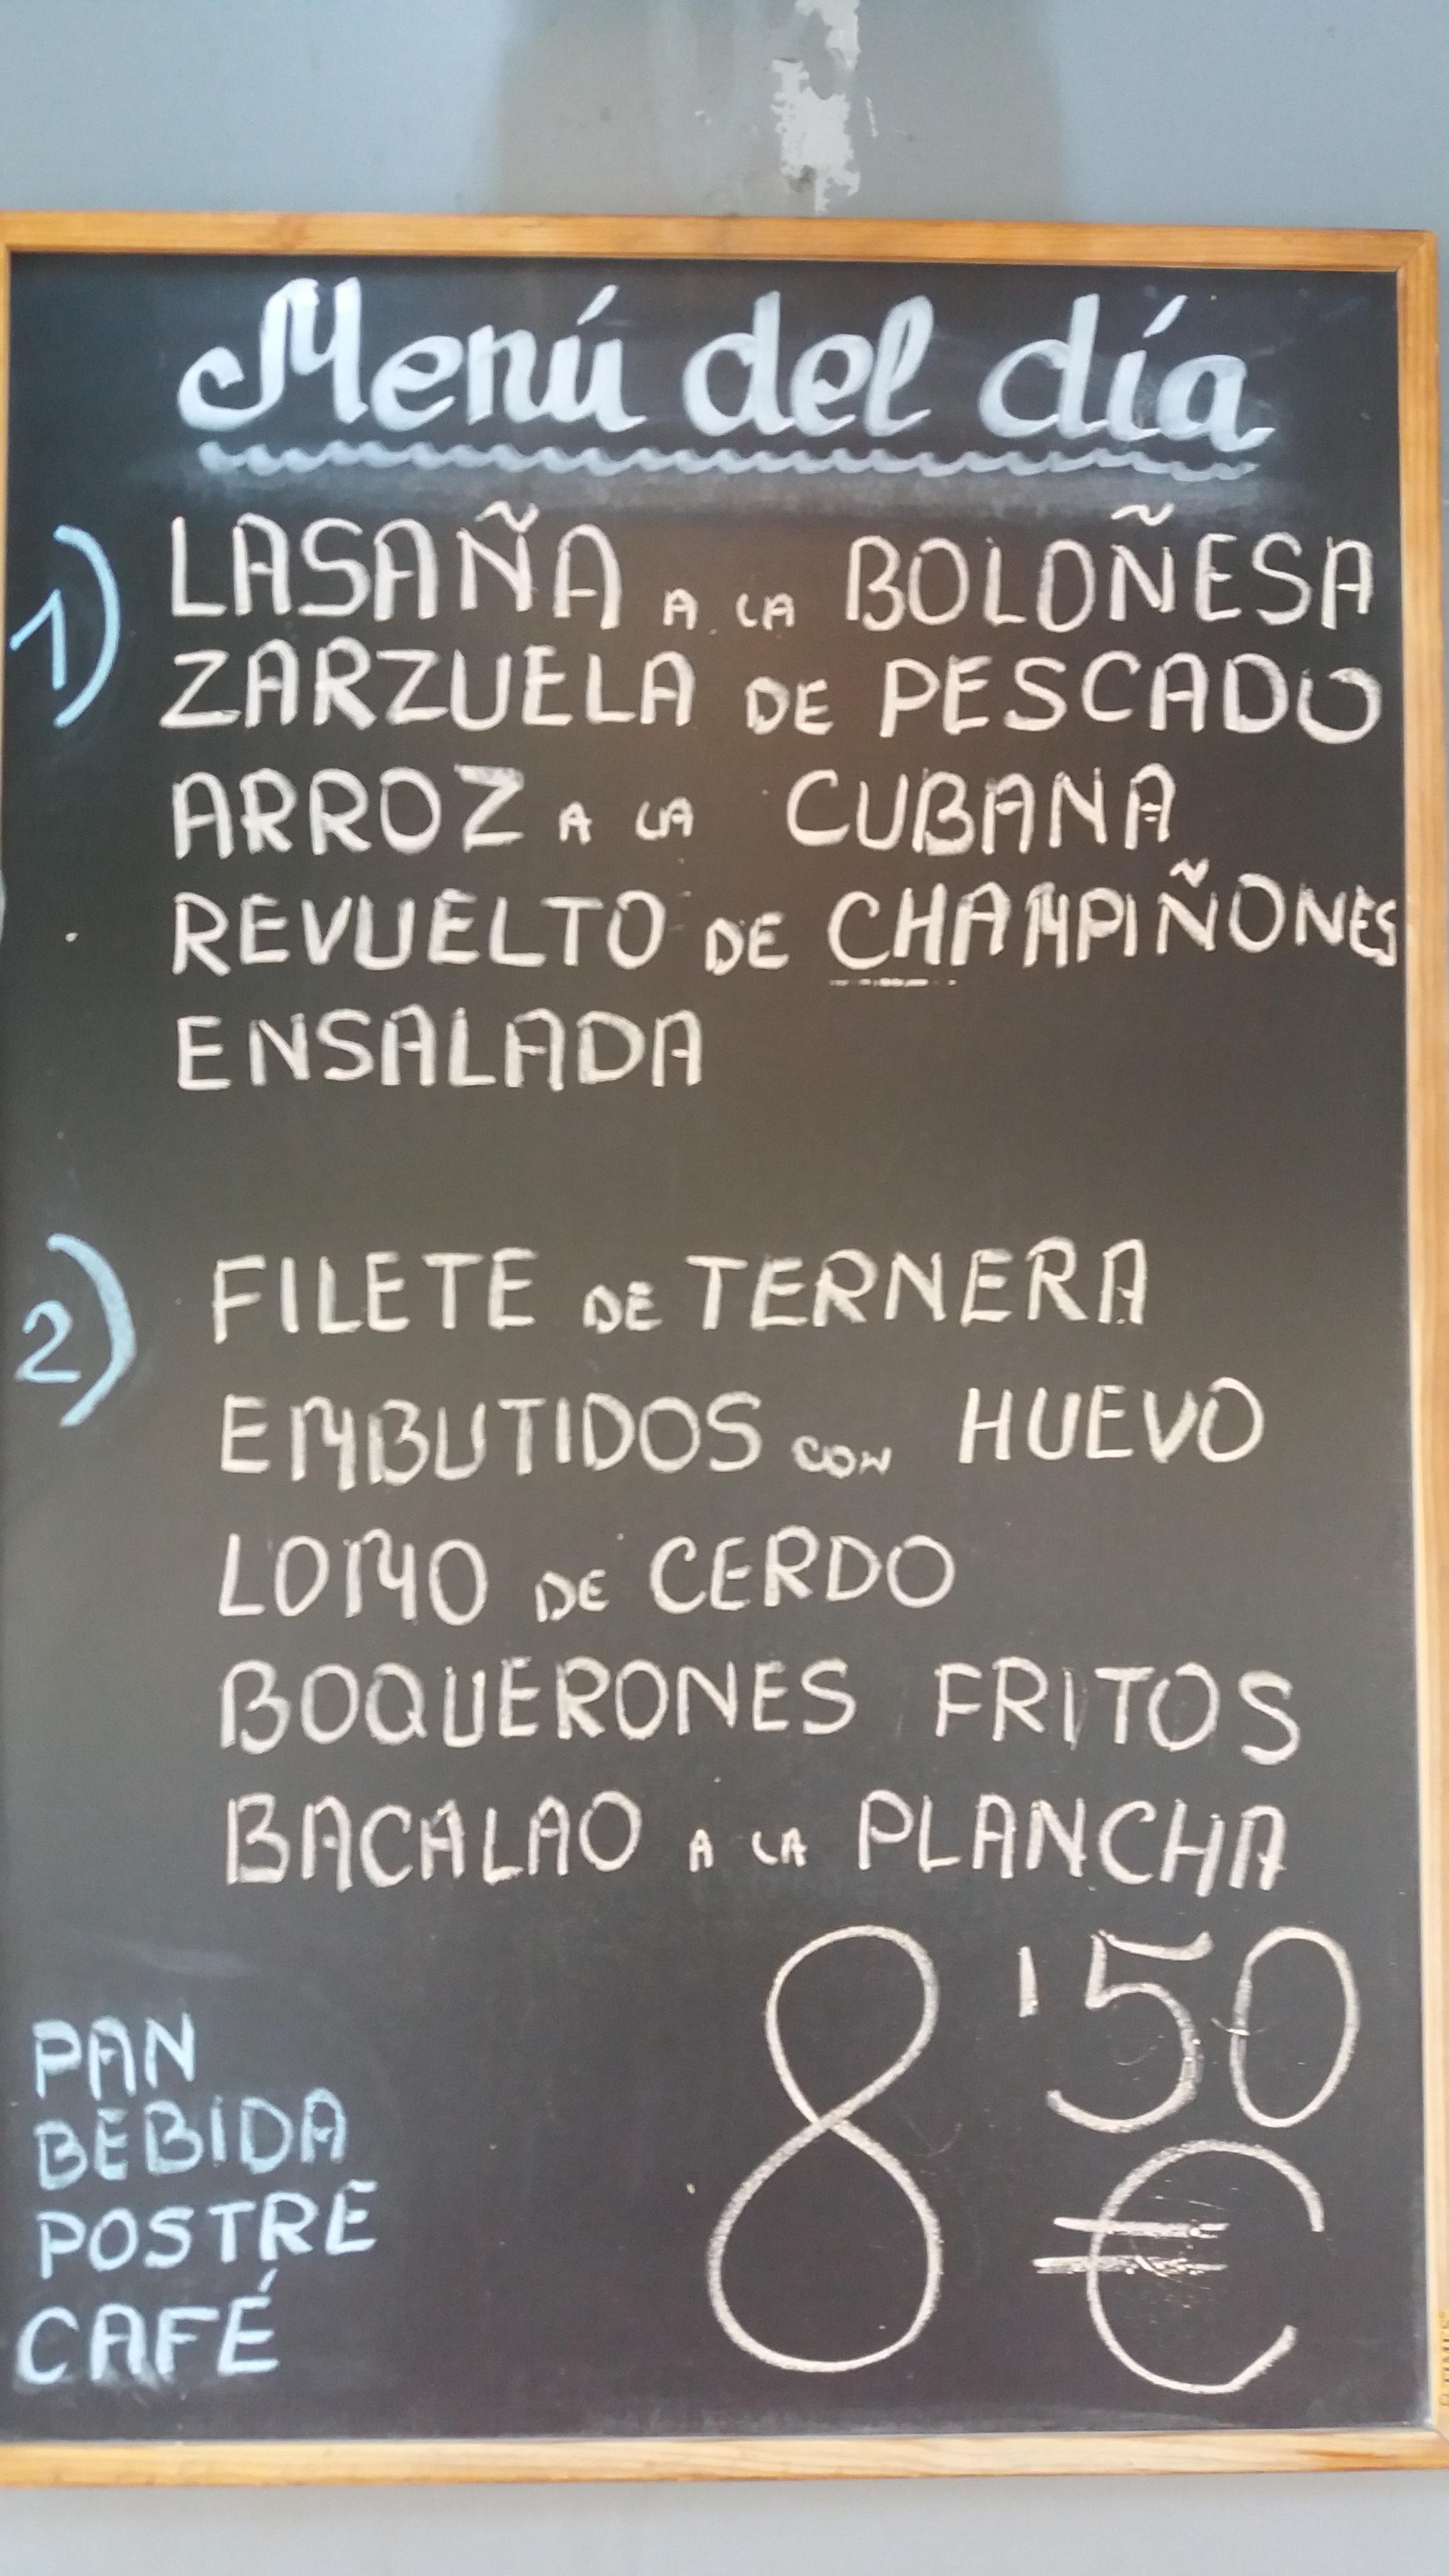 Menú del día
1) LASAÑA A LA BOLOÑESA
ZARZUELA DE PESCADO
ARROZ A LA CUBANA
REVUELTO DE CHAMPIÑONES
ENSALADA
2) FILETE DE TERNERA
EMBUTIDOS CON HUEVO
LOMO DE CERDO
BOQUERONES FRITOS
BACALAO A LA PLANCHA
8'50
€
PAN
BEBIDA
POSTRE
CAFÉ